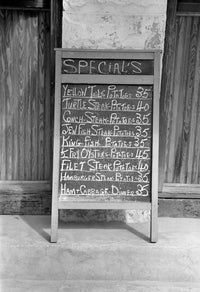 SPECIAL'S
YELLOW TAIL POTATOES 35
TURTLE STEAK-POTATOES 40
CONCH-STEAK-POTATOES 35
JEW FISH STEAK POTATOES 35
KING FISH POTATOES 35
FRY OYSTERS-POTATOES 45
FILET STEAK POTATOES 40
HAMBURGER STEAK POTATOES 35
HAM & CABBAGE DINNER 35